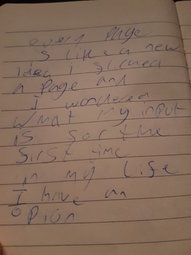 every Page
s like a new
Idea I
a Page and
I
what my input
is for the
first time
in my life
I have an
o
Pion